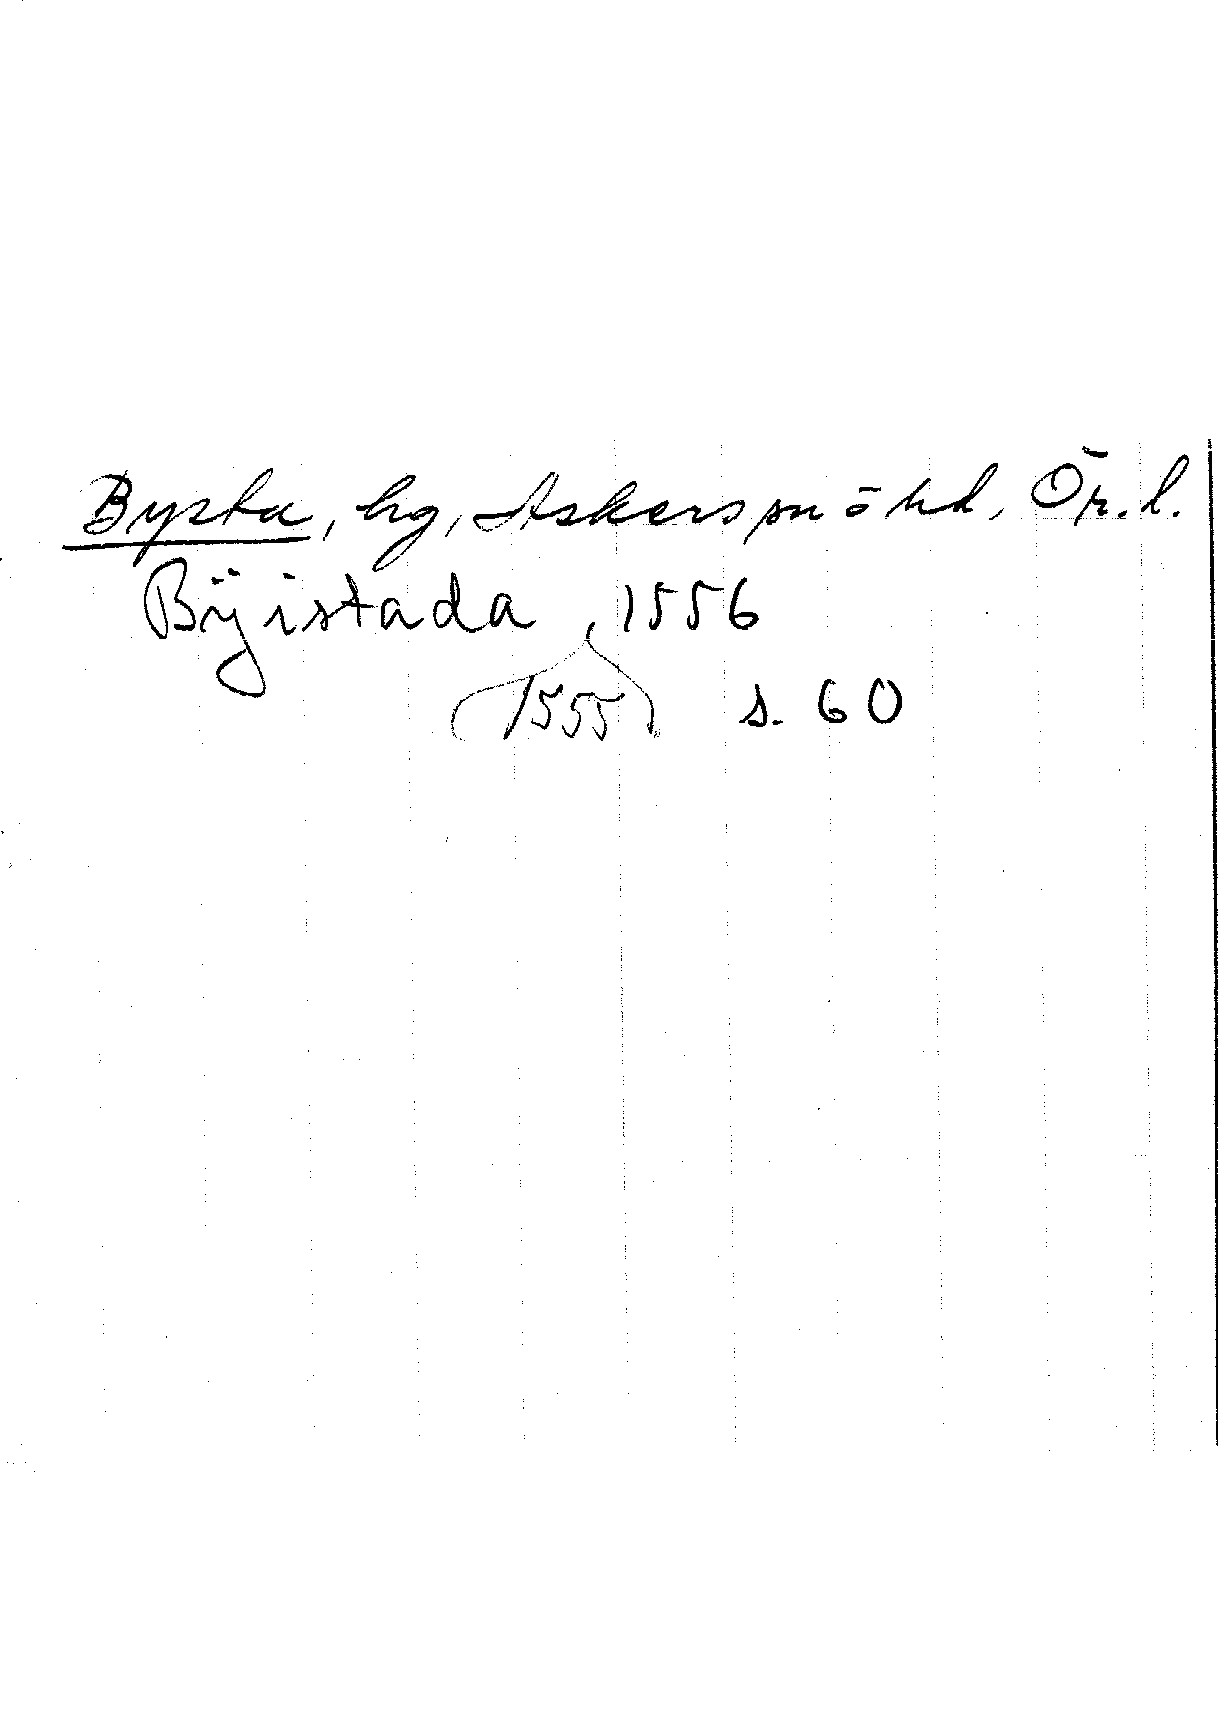 Bysta, hg, Askers sn ō hd, Ör. l.
Bÿistada, 1556
1555 s. 60